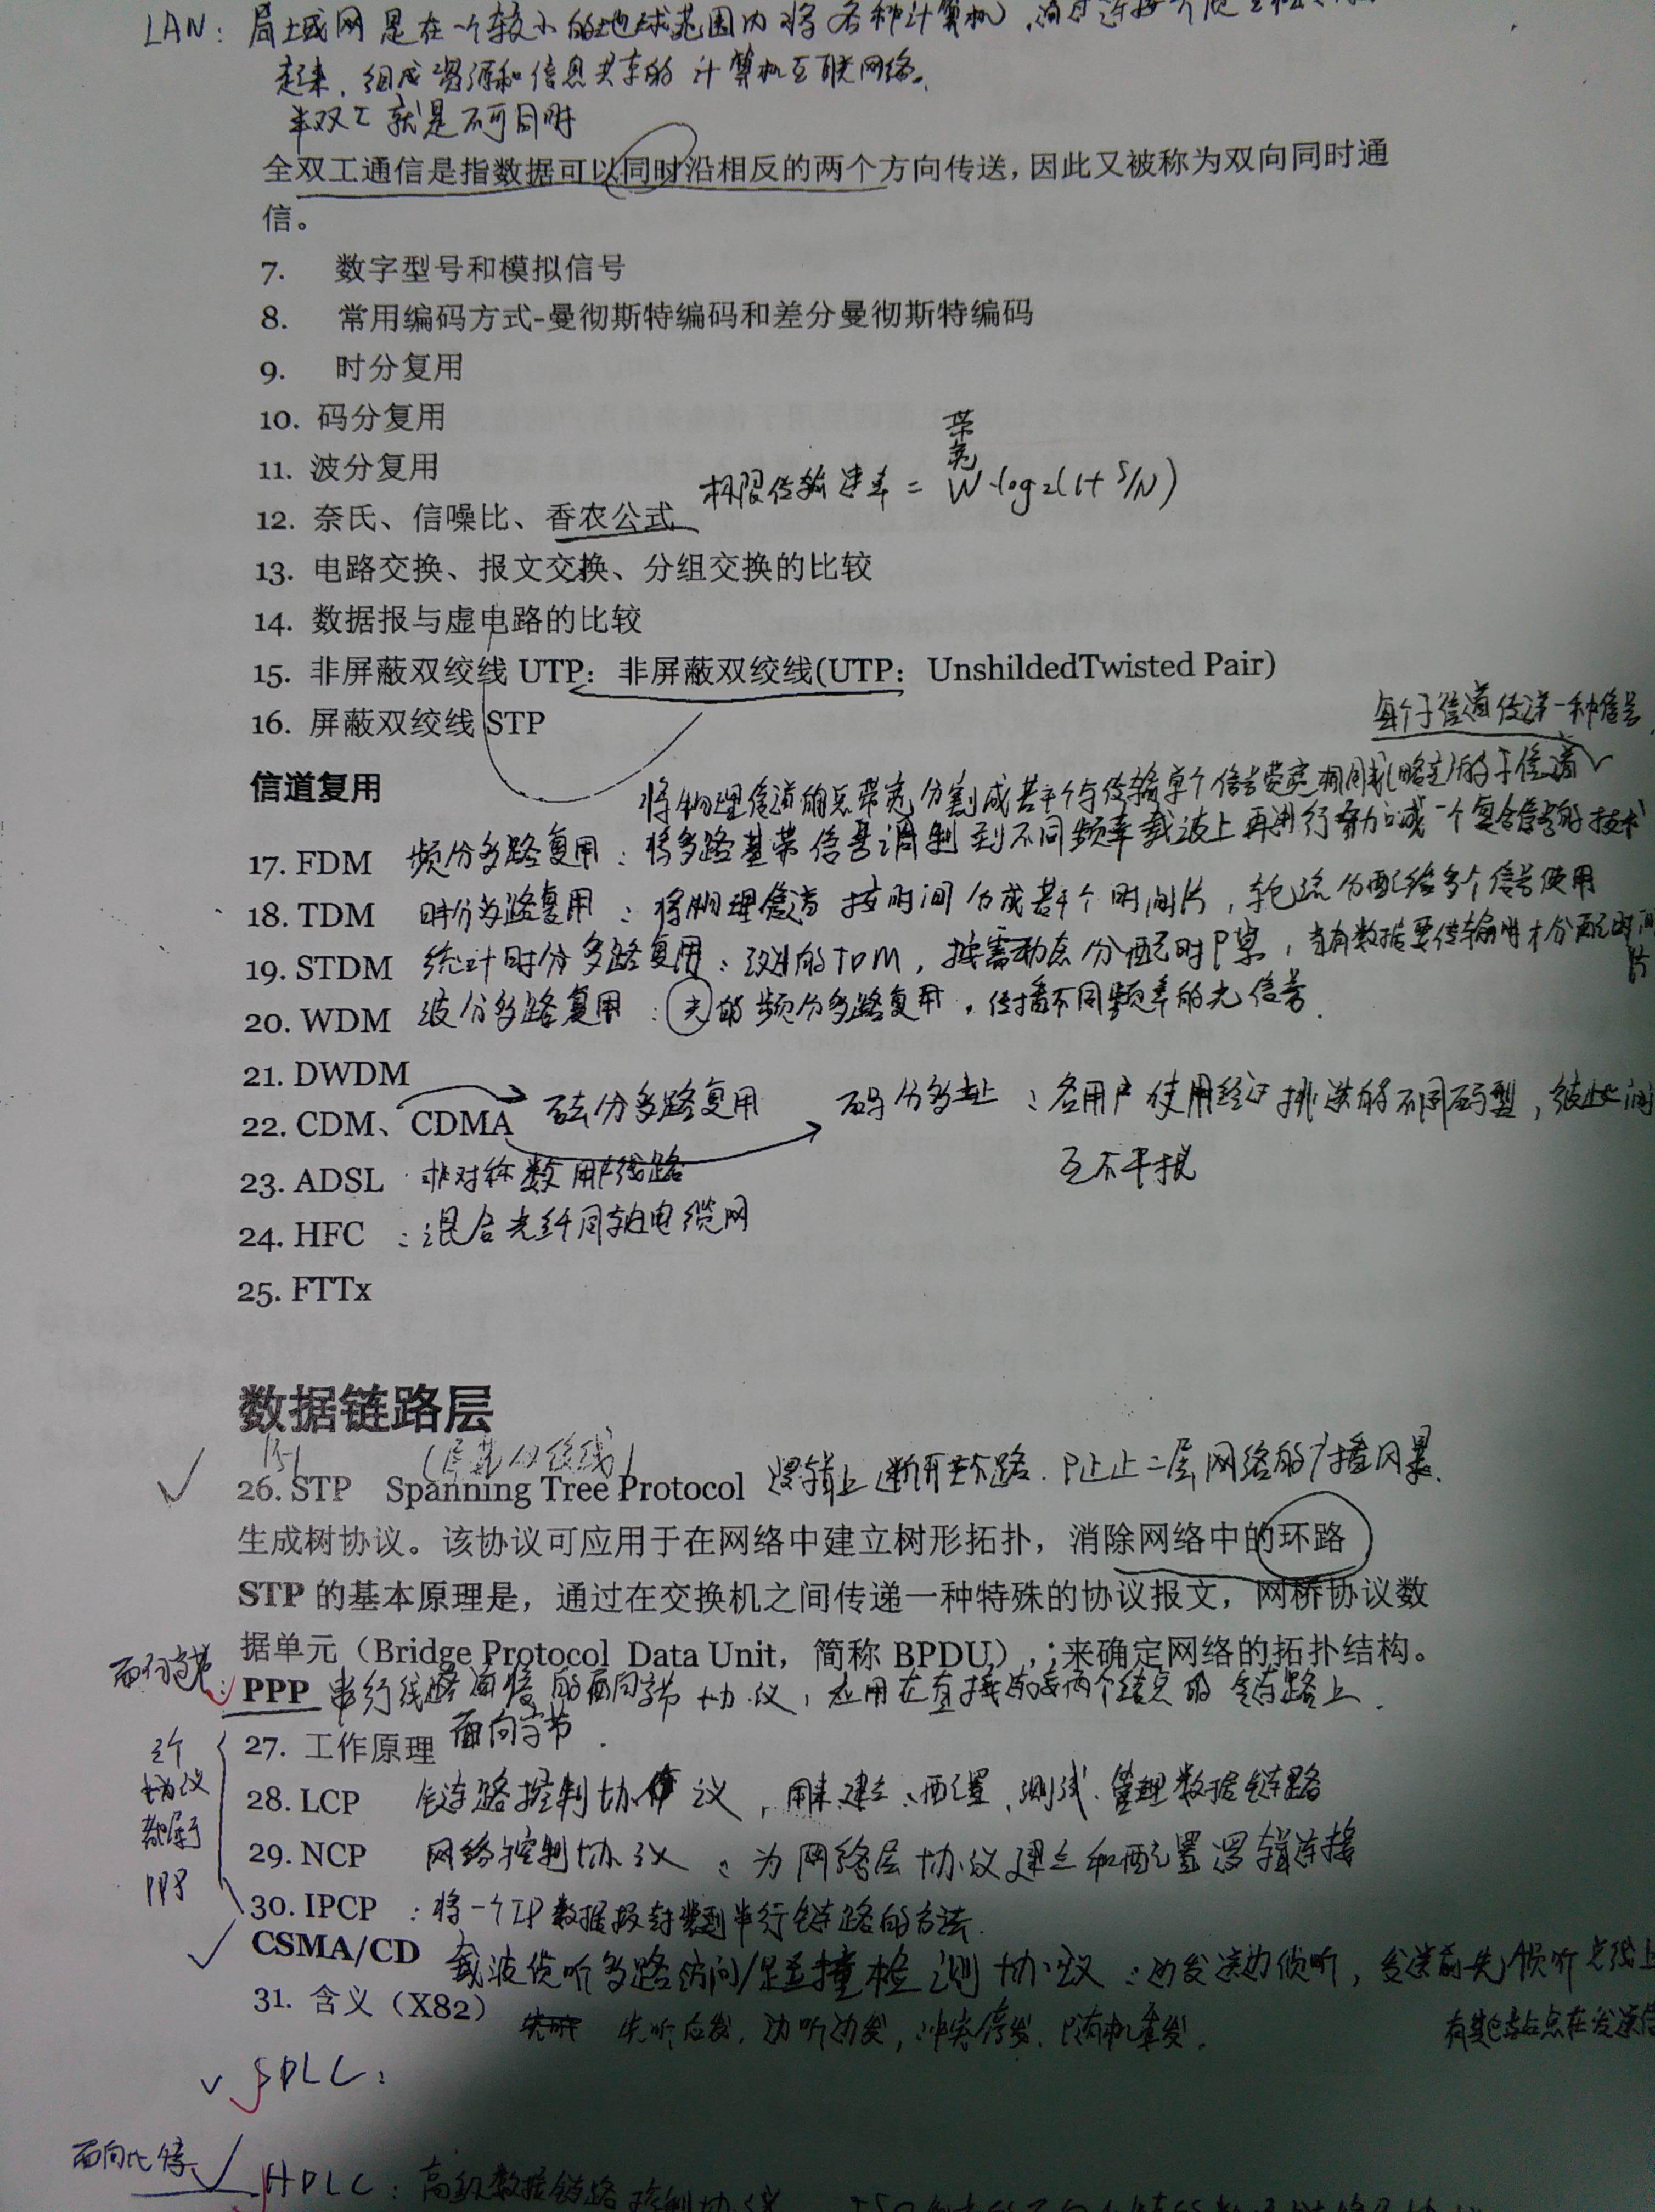 LAN：局域网是在一个较小的地球范围内将各种计算机，通过连接
起来，组成资源和信息共享的计算机互联网络。
半双工就是不可同时
全双工通信是指数据可以同时沿相反的两个方向传送，因此又被称为双向同时通
信。
7. 数字型号和模拟信号
8. 常用编码方式-曼彻斯特编码和差分曼彻斯特编码
9. 时分复用
10. 码分复用
带宽
11. 波分复用
极限传输速率 = W·log2(1+S/N)
12. 奈氏、信噪比、香农公式
13. 电路交换、报文交换、分组交换的比较
14. 数据报与虚电路的比较
15. 非屏蔽双绞线 UTP：非屏蔽双绞线(UTP：UnshildedTwisted Pair)
16. 屏蔽双绞线 STP
每个子信道传送一种信号
信道复用
将物理信道的总带宽分割成若干个与传输单个信号带宽相同或(略宽)的子信道
17. FDM 频分多路复用：将多路基带信号调制到不同频率载波上再进行叠加成一个复合信号的技术
18. TDM 时分多路复用：将物理信道按时间分成若干个时间片，轮流分配给多个信号使用
19. STDM 统计时分多路复用：改进的TDM，按需动态分配时隙，当有数据要传输时才分配时间片
20. WDM 波分多路复用：光的频分多路复用，传播不同频率的光信号.
21. DWDM
22. CDM、CDMA 码分多路复用 码分多址：各用户使用经过挑选的不同码型，彼此间
互不干扰
23. ADSL 非对称数用户线路
24. HFC ：混合光纤同轴电缆网
25. FTTx
数据链路层
(屏蔽双绞线)
26. STP Spanning Tree Protocol 逻辑上断开环路.防止二层网络的广播风暴.
生成树协议。该协议可应用于在网络中建立树形拓扑，消除网络中的环路
STP 的基本原理是，通过在交换机之间传递一种特殊的协议报文，网桥协议数
据单元（Bridge Protocol Data Unit，简称 BPDU）,；来确定网络的拓扑结构。
面向字节
PPP 串行线路通信的面向字节协议，应用在直接连接两个结点的链路上.
27. 工作原理 面向字节.
三个协议都属于PPP
28. LCP 链路控制协议，用来建立、配置、测试、管理数据链路
29. NCP 网络控制协议：为网络层协议建立和配置逻辑连接
30. IPCP ：将一个IP数据报封装到串行链路的方法.
CSMA/CD 载波侦听多路访问/碰撞检测协议：边发送边侦听，发送前先侦听总线上
有其它站点在发送信
31. 含义（X82）
先听后发，边听边发，冲突停发，随机重发.
SDLC：
面向比特
HDLC：高级数据链路控制协议